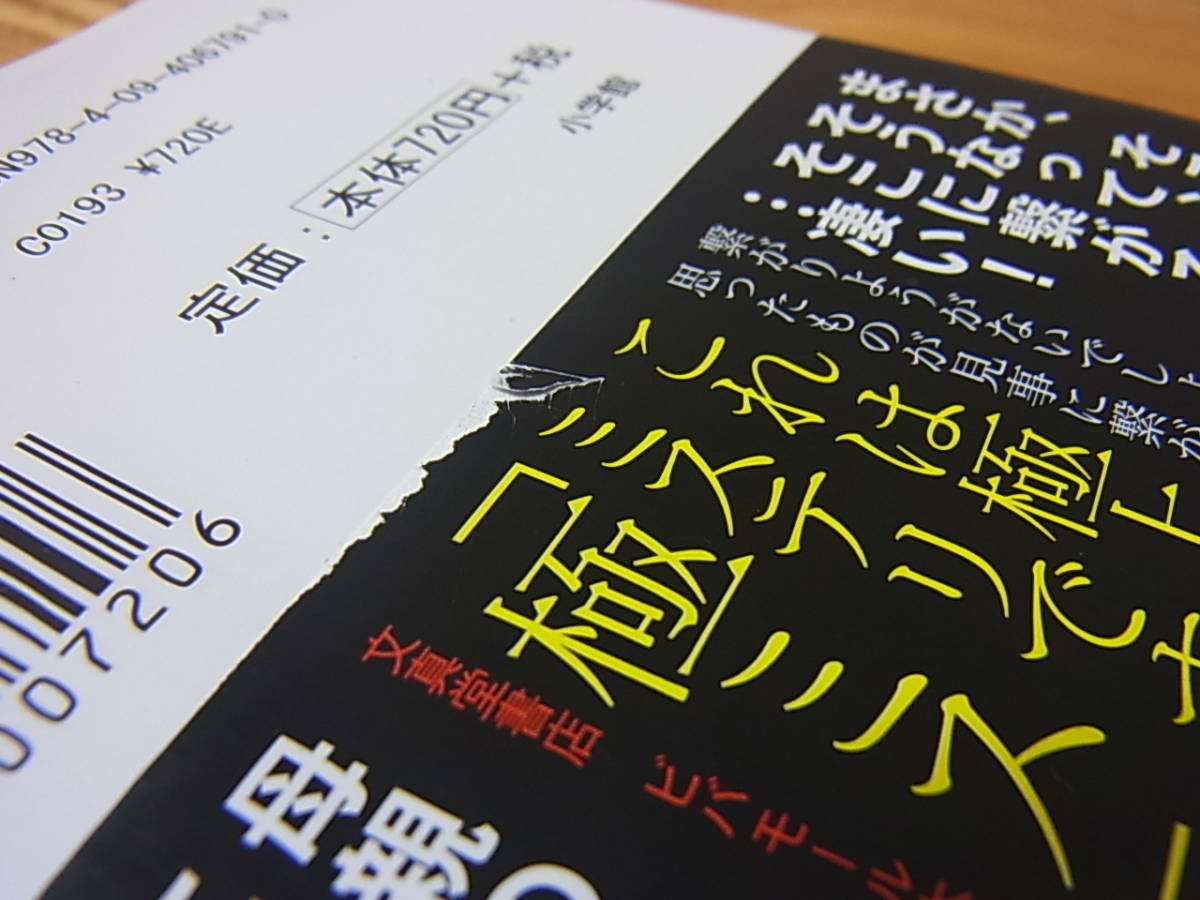 N978-4-09-406791-0
C0193 ¥720E
定価：本体720円＋税
小学館
007206
まさか、そ
そうなって、
そこに繋が
…凄い！
繋がりようがないでし
思ったものが見事に繋が
これは極上
ミステリです
「極ミス
文真堂書店 ビバモール
母親の